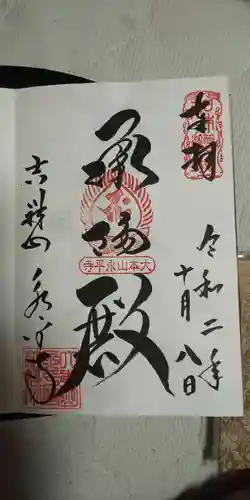 奉拝
令和二年
十月八日
承陽殿
大本山永平寺
吉祥山 永平寺